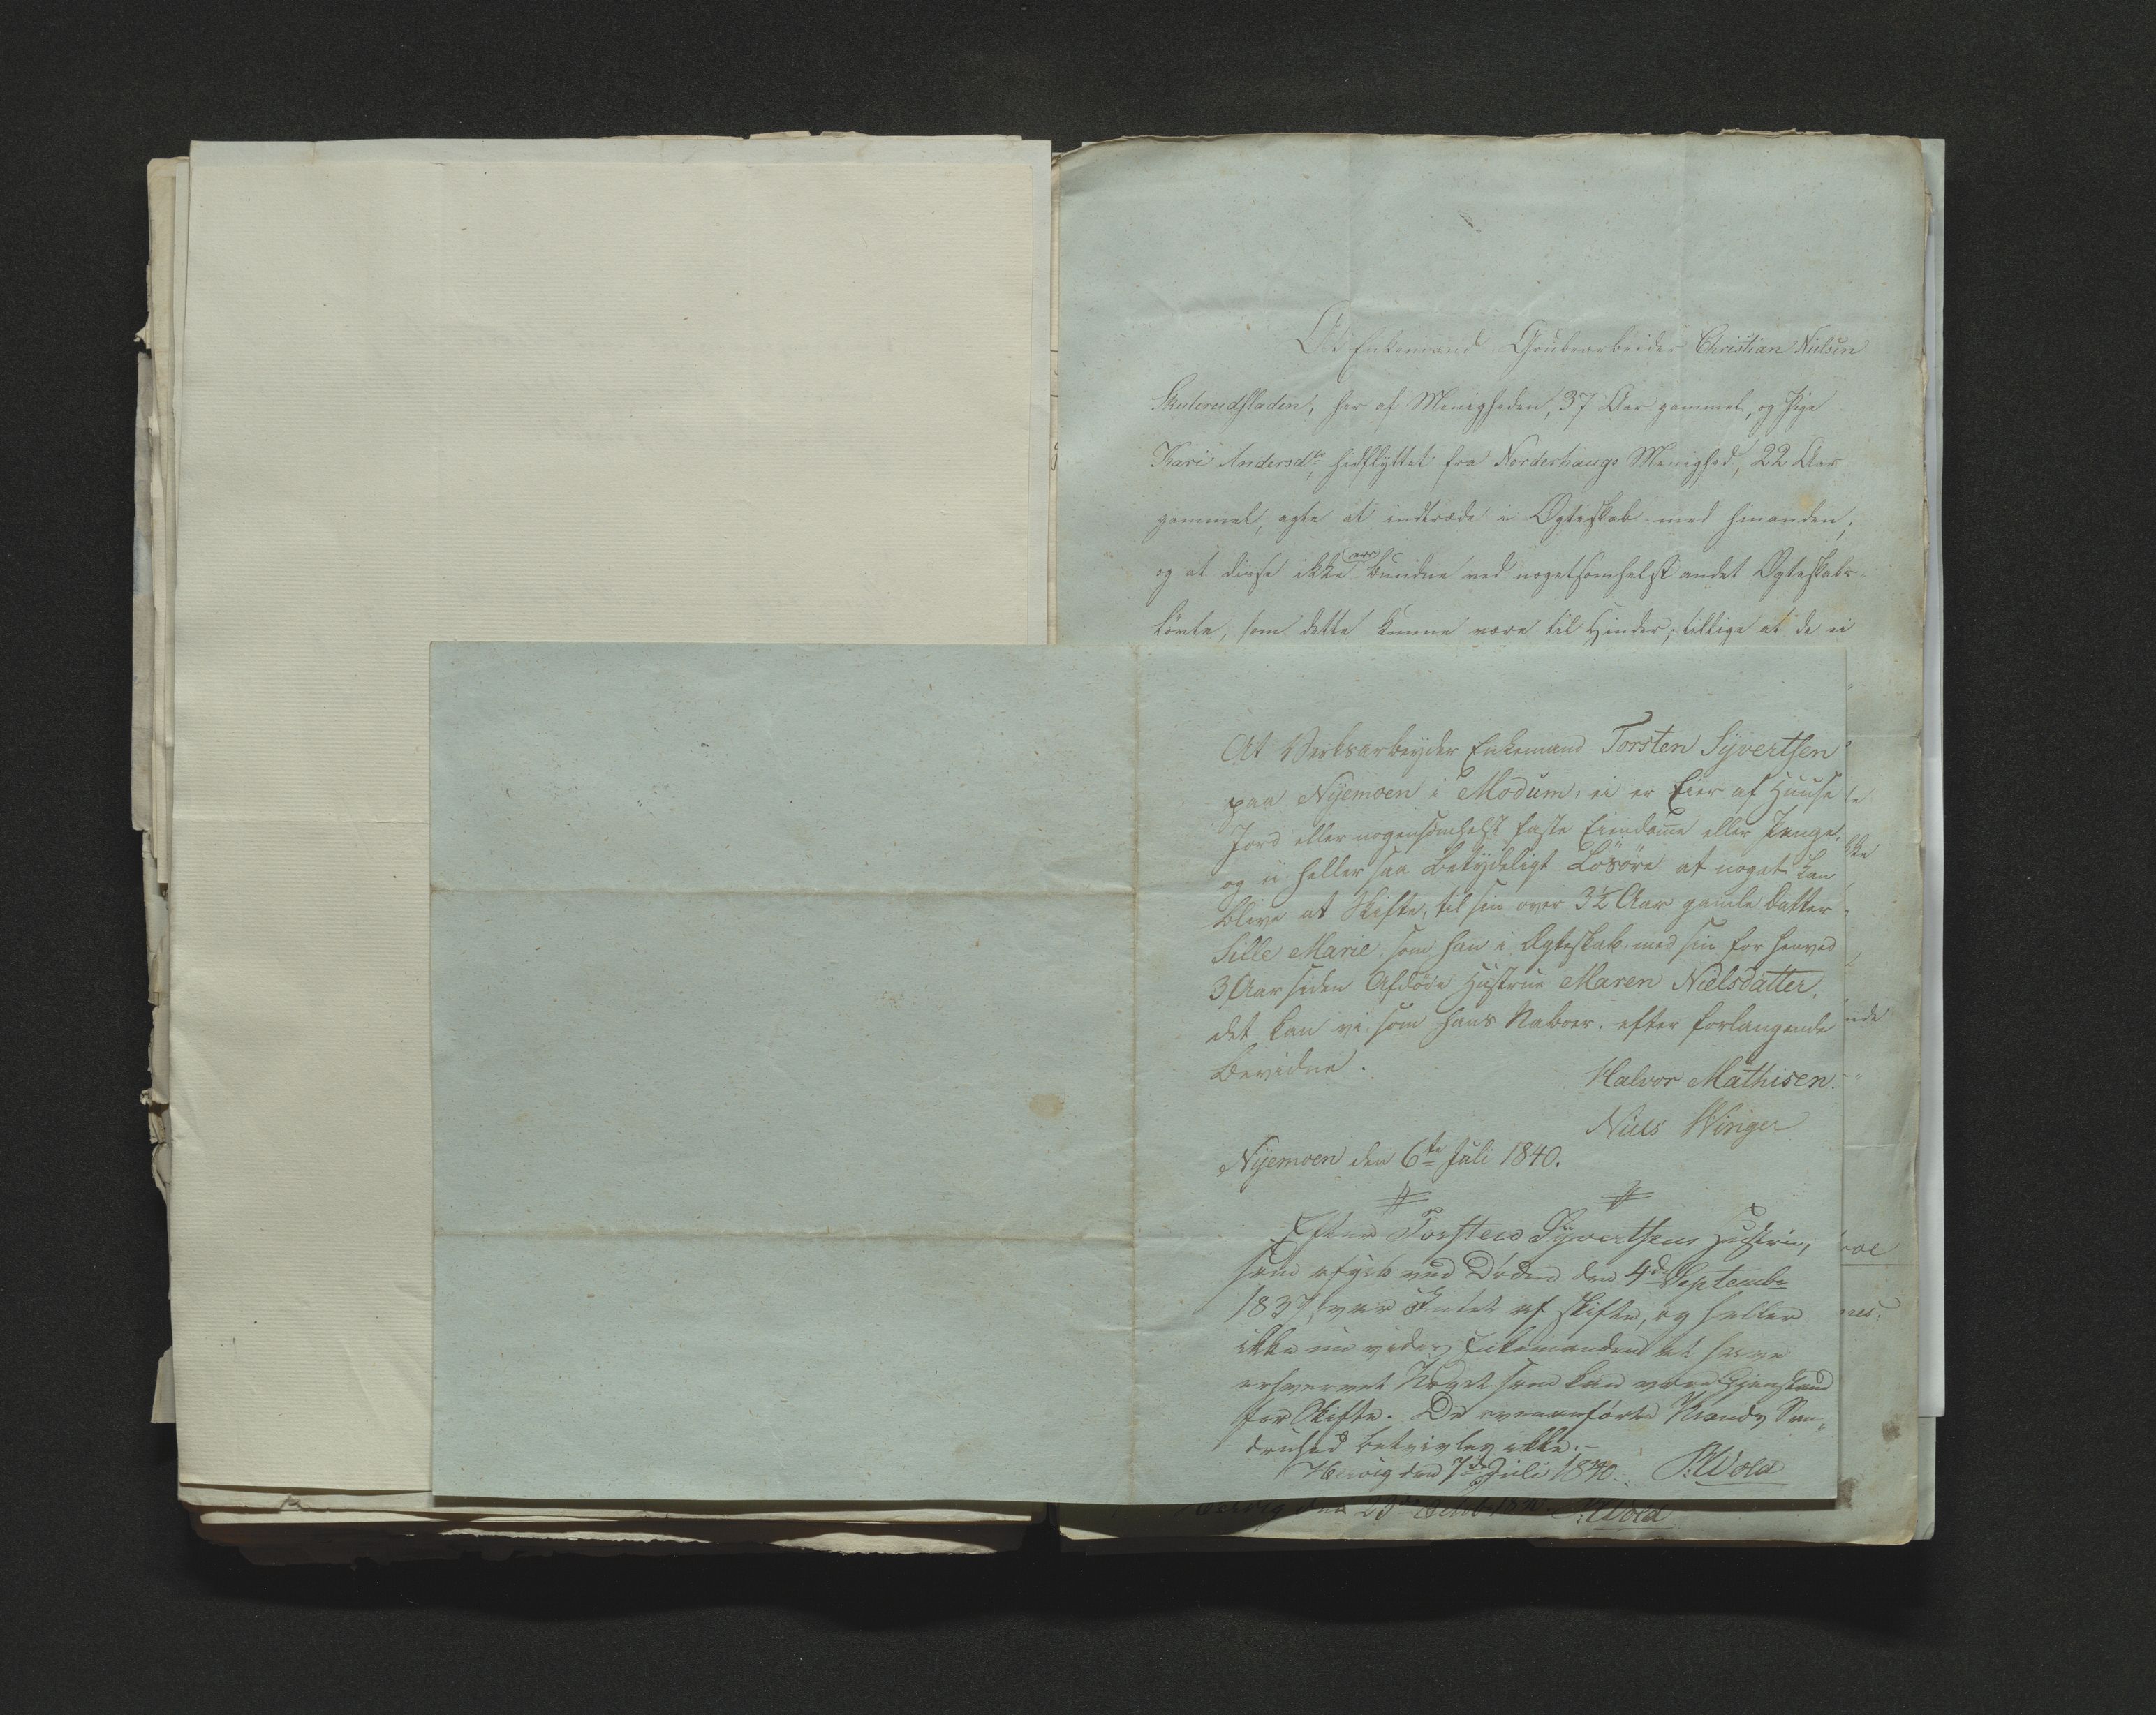 At Enkemand Grubearbeider Christian Nielsen
Skuterudfladen, her af Menigheden, 37 Aar gammel, og Pige
Kari Andersdtr, hidflyttet fra Norderhaugs Menighed, 22 Aar
gammel, agte at indtræde i Ægteskab med hinanden,
og at disse ikke ere bundne ved nogetsomhelst andet Ægteskabs-
Løvte, som dette kunne være til Hinder; tillige at de ei
At Verksarbeyder Enkemand Torsten Syvertsen
paa Nyemoen i Modum, ei er Eier af Huuse
Jord eller nogensomhelst faste Eiendome eller Penge,
og ei heller saa Betydeligt Løsøre at noget kan
blive at Skifte, til sin over 3½ Aar gamle Datter
Sille Marie, som han i Ægteskab med sin for henved
3 Aar siden Afdøde Hustrue Maren Nielsdatter,
det kan vi som hans Naboer, efter forlangende
Bevidne.
Halvor Mathisen.
Niels Winger
Nyemoen den 6te Juli 1840.
Efter Torsten Syvertsens Hustrue,
som afgik ved Døden den 4de Septembr
1837, var Intet at skifte, og heller
ikke nu vides Enkemanden at have
erhvervet Noget som kan være Gjenstand
for Skifte. De ovenanførte Mænds San-
druhed betvivles ikke.-
Hervig den 7de Juli 1840. P. Wold
Hervig den 23de Octob 1840. P. Wold